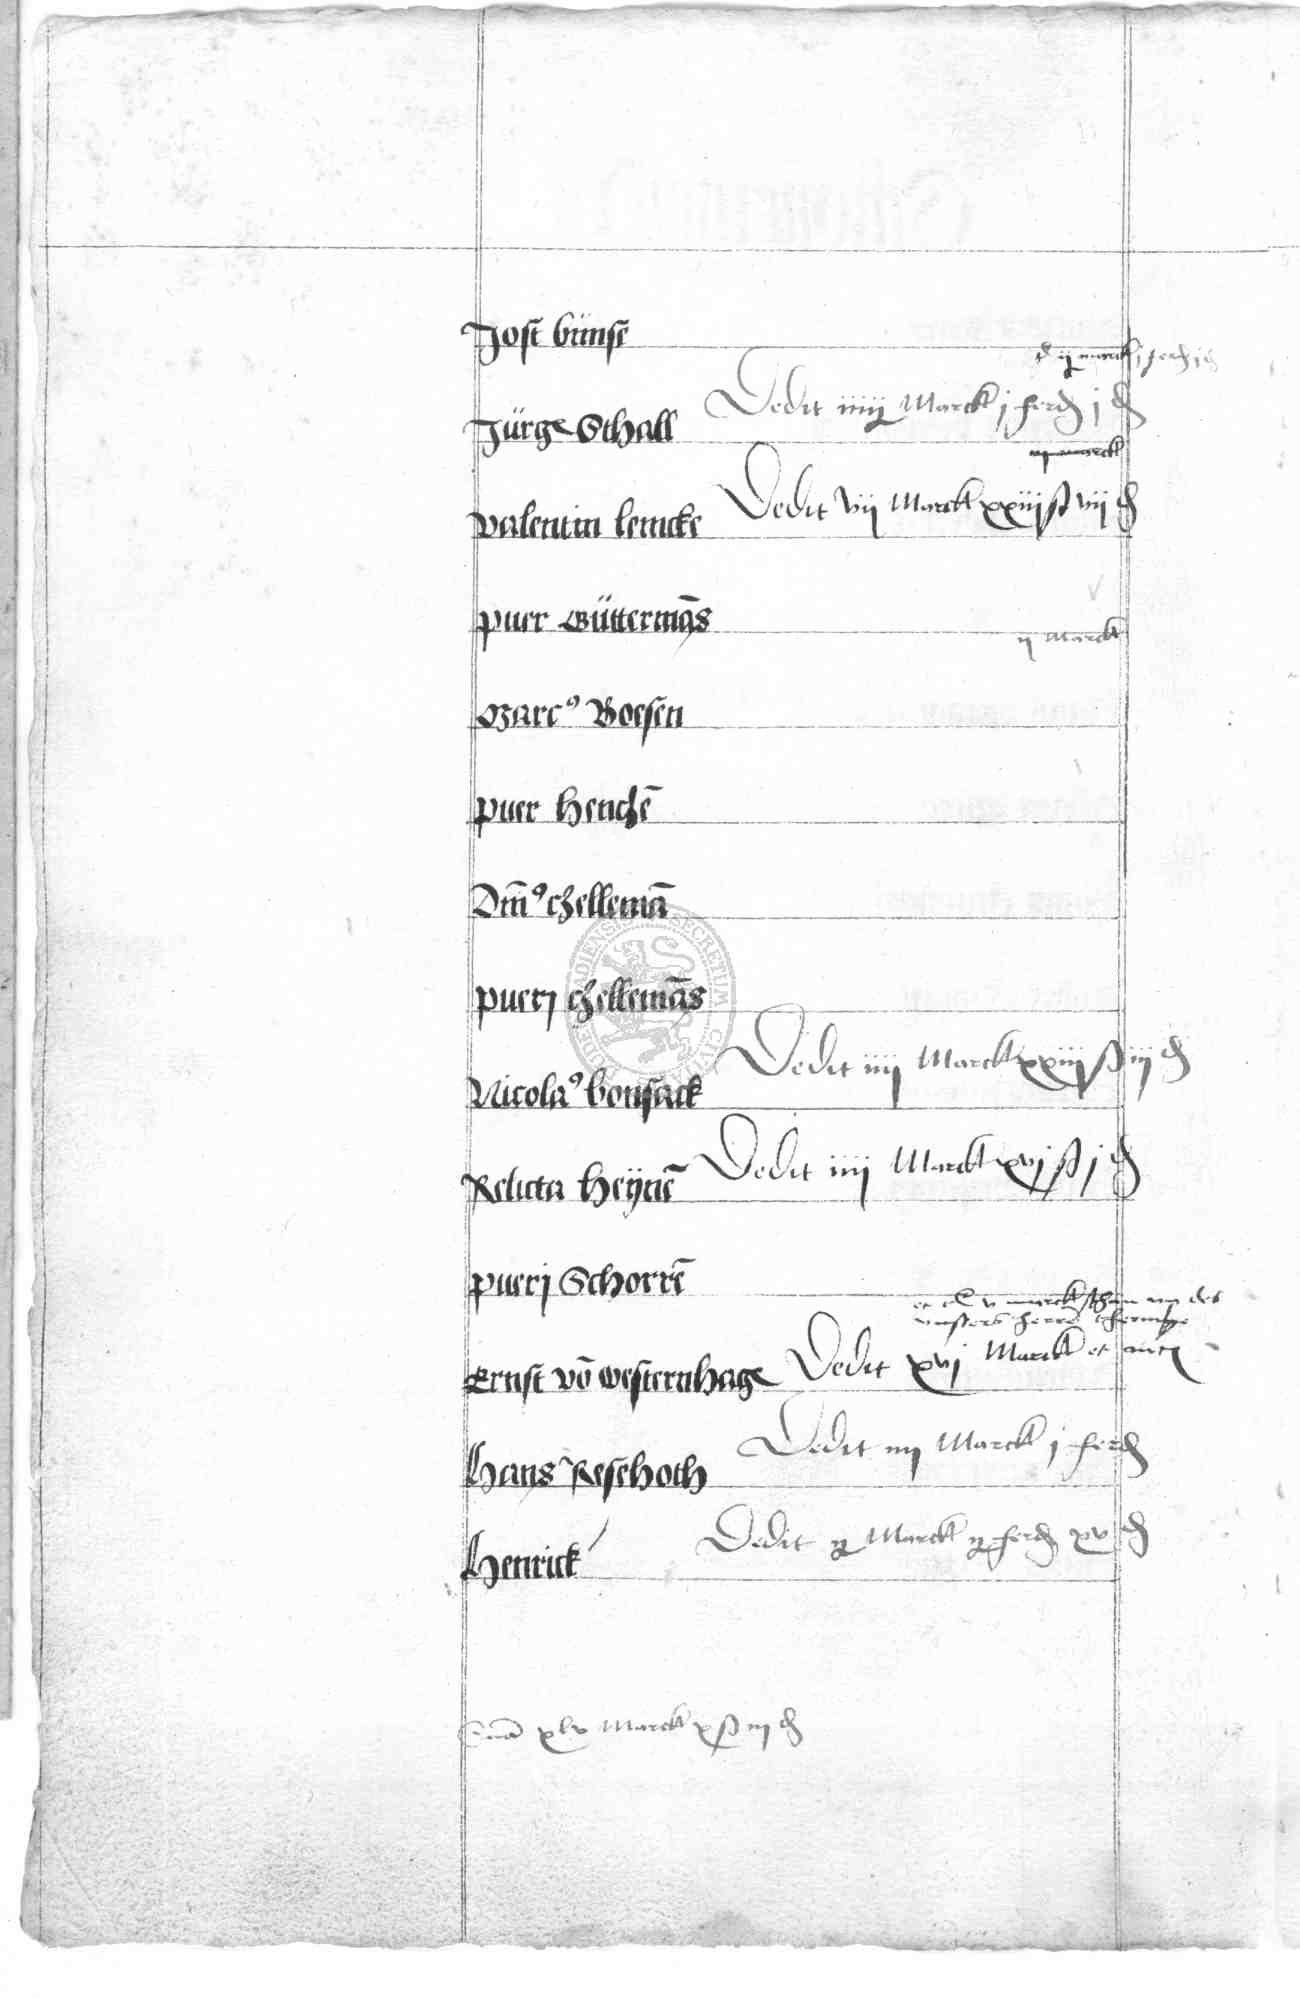 Jost bünsē
Jürge Schall Dedit iiij Marck j ferd j d
marck
Valentin lemcke Dedit vij Marck xxiij ß vij d
puer Güttermās
ij Marck
Marc9 Boesen
puer Henchē
chellemā
puerj chellemās
Nicola9 bonsack Dedit iiij Marck xxiij ß iij d
Relicta Heÿnē Dedit iiij Marck xvj ß j d
puerj Schorrē
marck
Ernst vō westernhage Dedit xvj Marck et
Hans Resehoth Dedit iij Marck j ferd
Henrick Dedit ij Marck ij ferd xv d
xlv Marck x ß iij d
SECRETUM